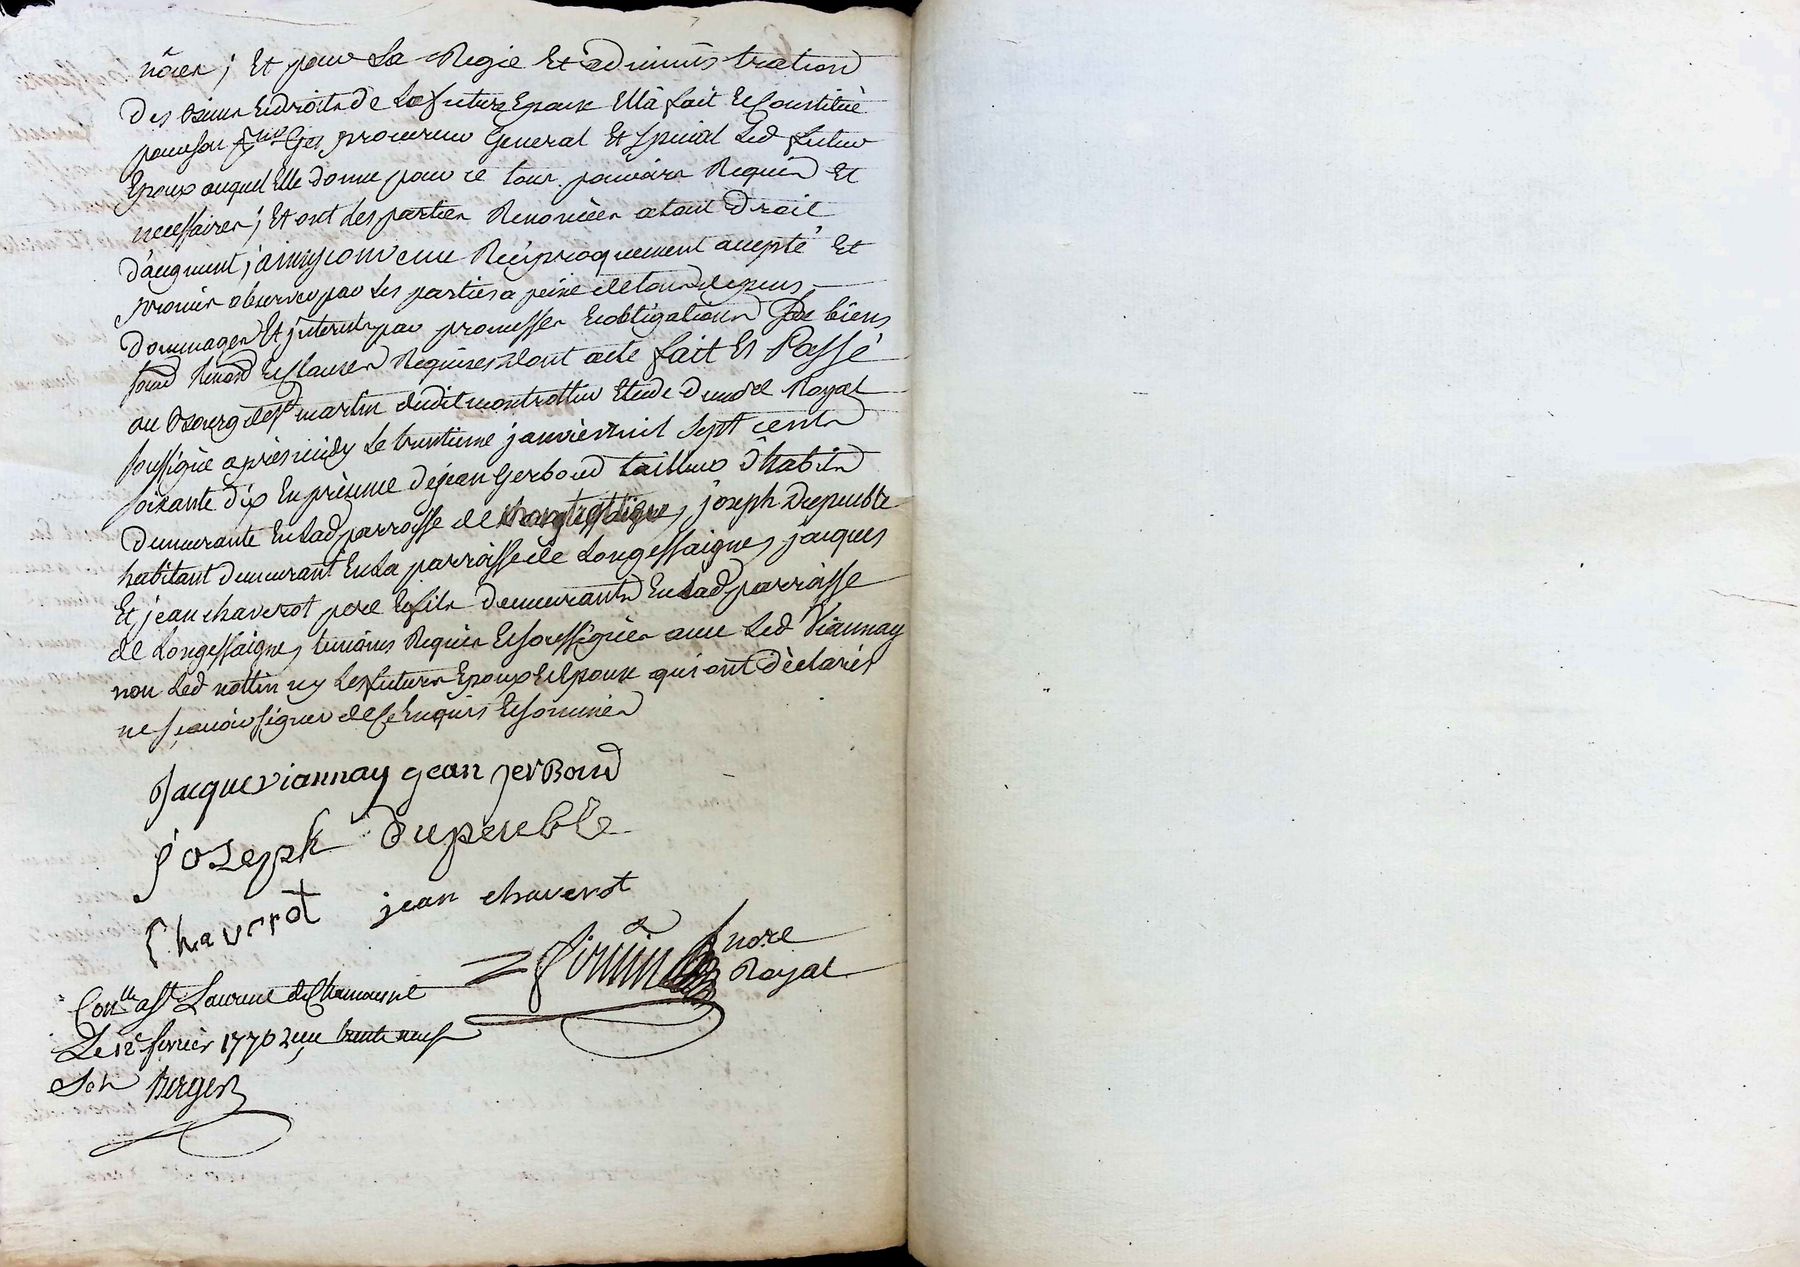 nôces ; Et pour La Regie Et administration
Des biens Et droits de La future Epouse Ellâ fait Et Constitué
pour son procureur General Et spécial Led futur
Epoux auquel Elle donne pour ce tous pouvoirs Requis Et
necessaires ; Et ont les parties Renoncées atout Droit
D'augment ; ainsy convenu Réciproquement accepté Et
promis observer par Les parties a peine de tous depens
Dommages Et jnterests par promesses Et obligations De biens
Et Clauses Requises dont acte fait Et Passé
au Bourg de St martin dudit montrottier Etude Du nore Royal
soussigné après midy Le trentieme janvier mil sept cents
soixante dix En présence de jean Gerboud tailleur d'habits
Demeurante En Lad parroisse de , joseph Dupeuble
habitant demeurant En La parroisse de Longessaigne, jacques
Et jean chaverot pere Et fils demeurants En Lad parroisse
de Longessaigne, temoins Requis Et soussignés avec Led Viannay
non Led nottin ny Les futurs Epoux Et Epouse qui ont déclarés
ne sçavoir signer de ce Enquis Et sommés
Jacque viannay jean jerBoud
joseph dupeuble
Chaverot jean chaverot
nore
Royal
Conlle ast Laurent de Chamousset
Le 12e fevrier 1770 Reçu trente neuf
sols Berger